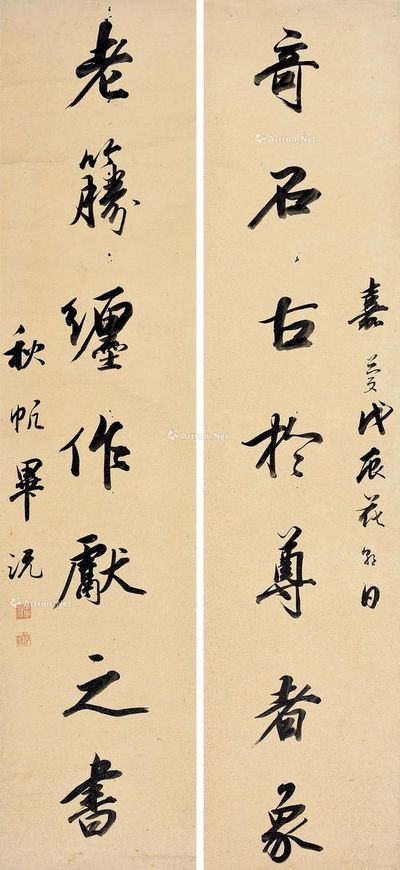 奇石古於尊者象
嘉慶戊辰花朝日
老籐纏作獻之書
秋帆畢沅
Artron.Net
Artron.Net
Artron.Net